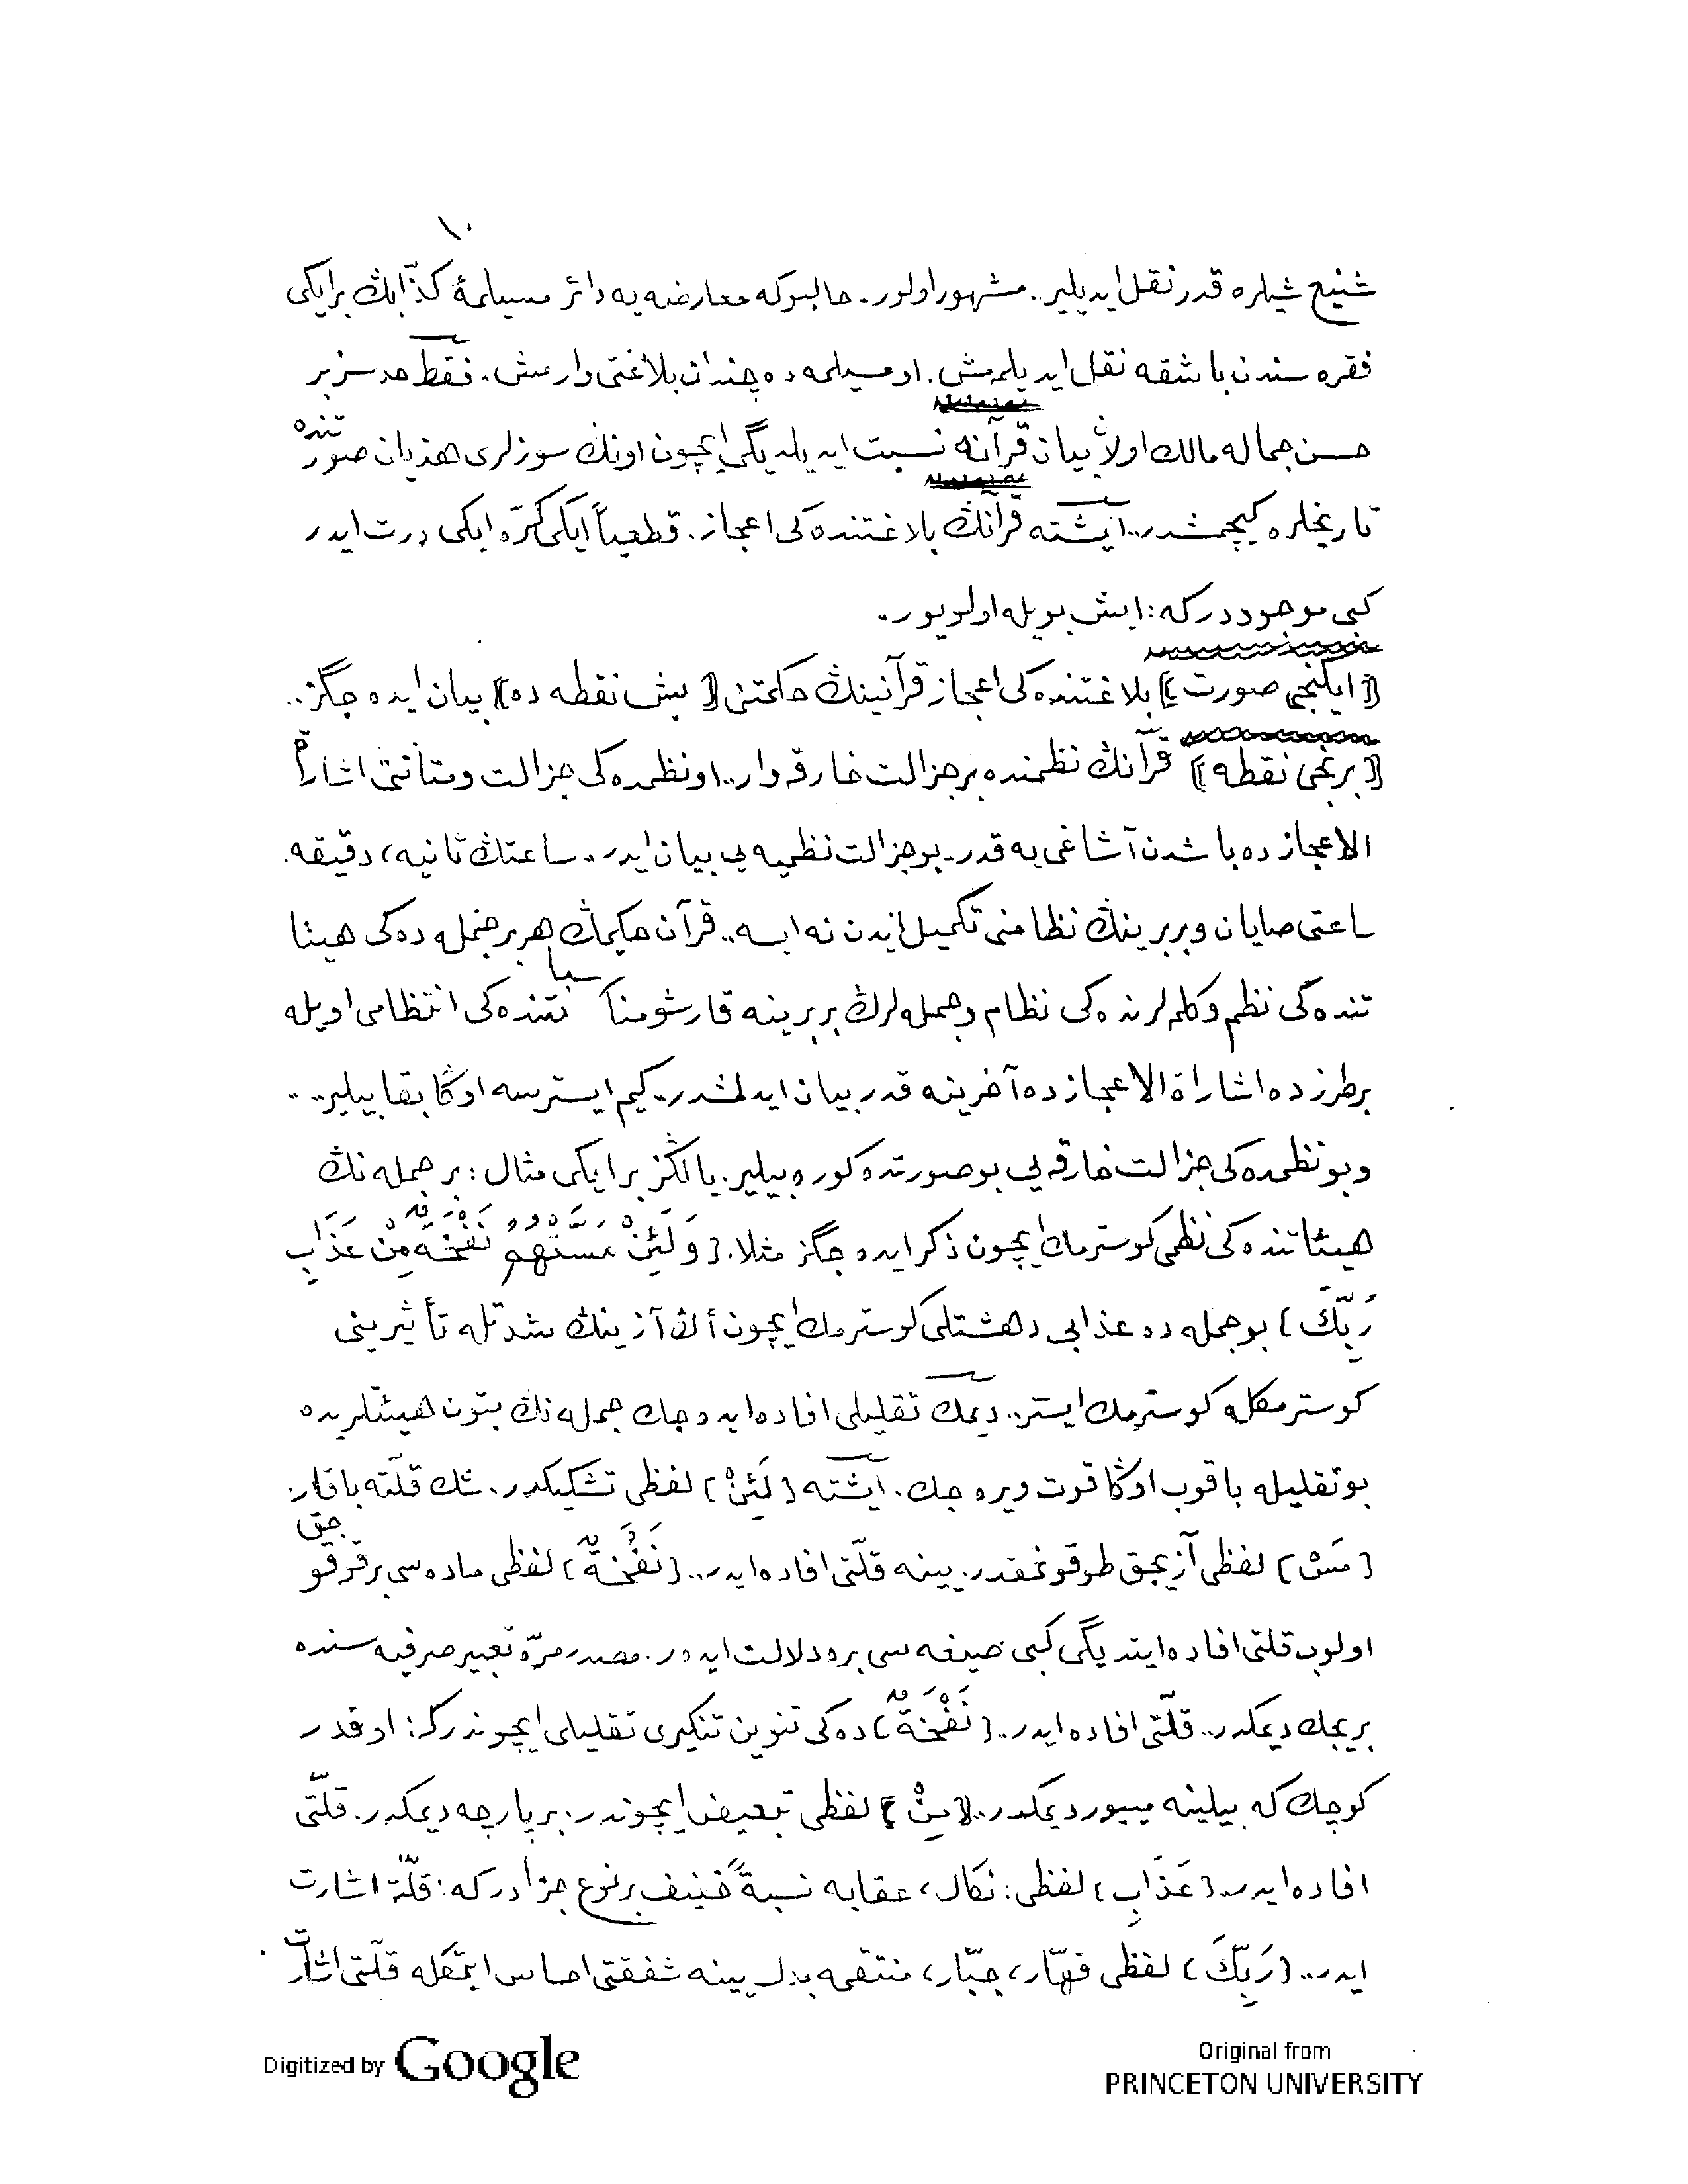 ١٠
شنیع شیلره قدر نقل ایدیلیر.. مشهور اولور. حالبوكه معارضه یه دائر مسیلمۀ كذّابڭ بر ایكی
فقره سندن باشقه نقل ایدیلمه مش. او مسیلمه ده چندان بلاغتی وارمش. فقط حدسز بر
حسن جماله مالك اولان بیان قرآنه نسبت ایدیلدیگی ایچون اونڭ سوزلری هذیان صورتنده
تاریخلره كچمشدر.. ایشته قرآنڭ بلاغتنده كی اعجاز. قطعیاً ایكی كرّه ایكی درت ایدر
كبی موجوددركه: ایش بویله اولویور.
﴿ایكنجی صورت﴾ بلاغتنده كی اعجاز قرآنینڭ حكمتنی ﴿بش نقطه ده﴾ بیان ایده جگز..
﴿برنجی نقطه﴾ قرآنڭ نظمنده بر جزالت خارقه وار.. او نظمده كی جزالت و متانتی اشاراة
الاعجاز ده باشدن آشاغی یه قدر. بو جزالت نظمیه یی بیان ایدر. ساعتڭ ثانیه، دقیقه.
ساعتی صایان و بربرینڭ نظامنی تكمیل ایدن نه ایسه.. قرآن حكیمڭ هر بر جمله ده كی هیئا
تنده كی نظم و كلمه لرنده كی نظام و جمله لرڭ بربرینه قارشو مناسبا تنده كی انتظامی اویله
بر طرزده اشاراة الاعجاز ده آخرینه قدر بیان ایدلمشدر. كیم ایسترسه اوڭا بقابیلیر..
و بو نظمده كی جزالت خارقه یی بو صورتده كوره بیلیر. یالڭز بر ایكی مثال: بر جمله نڭ
هیئاتنده كی نظمی كوسترمك ایچون ذكر ایده جگز مثلا. ﴿وَلَئِنْ مَسَّتْهُمْ نَفْحَةٌ مِنْ عَذَابِ
رَبِّكَ﴾ بو جمله ده عذابی دهشتلی كوسترمك ایچون أڭ آزینڭ شدتله تأثیرینی
كوسترمكله كوسترمك ایستر.. دیمك تقلیلی افاده ایده جك جمله نڭ بتون هیئتلریده
بو تقلیله باقوب اوڭا قوت ویره جك. ایشته ﴿لَئِنْ﴾ لفظی تشكیكدر. شك قلّته باقار.
﴿مَسْ﴾ لفظی آزیجق طوقونمقدر. یینه قلّتی افاده ایدر.. ﴿نَفْحَةٌ﴾ لفظی ماده سی بر قوقوجق
اولوب قلتی افاده ایتدیگی كبی صیغه سی بره دلالت ایدر. مصدر مرّه تعبیر صرفیه سنده
بریجك دیمكدر.. قلّتی افاده ایدر.. ﴿نَفْحَةٌ﴾ ده كی تنوین تنكیری تقلیلی ایچوندركه: او قدر
كوچك كه بیلینه میور دیمكدر.. ﴿مِنْ﴾ لفظی تبعیض ایچوندر. بر پارچه دیمكدر. قلّتی
افاده ایدر.. ﴿عَذَابِ﴾ لفظی: نكال، عقابه نسبةً خفیف بر نوع جزادركه: قلّته اشارت
ایدر.. ﴿رَبِّكَ﴾ لفظی قهّار، جبّار، منتقمه بدل یینه شفقتی احساس ایتمكله قلّتی اشارت
Digitized by Google
Original from
PRINCETON UNIVERSITY